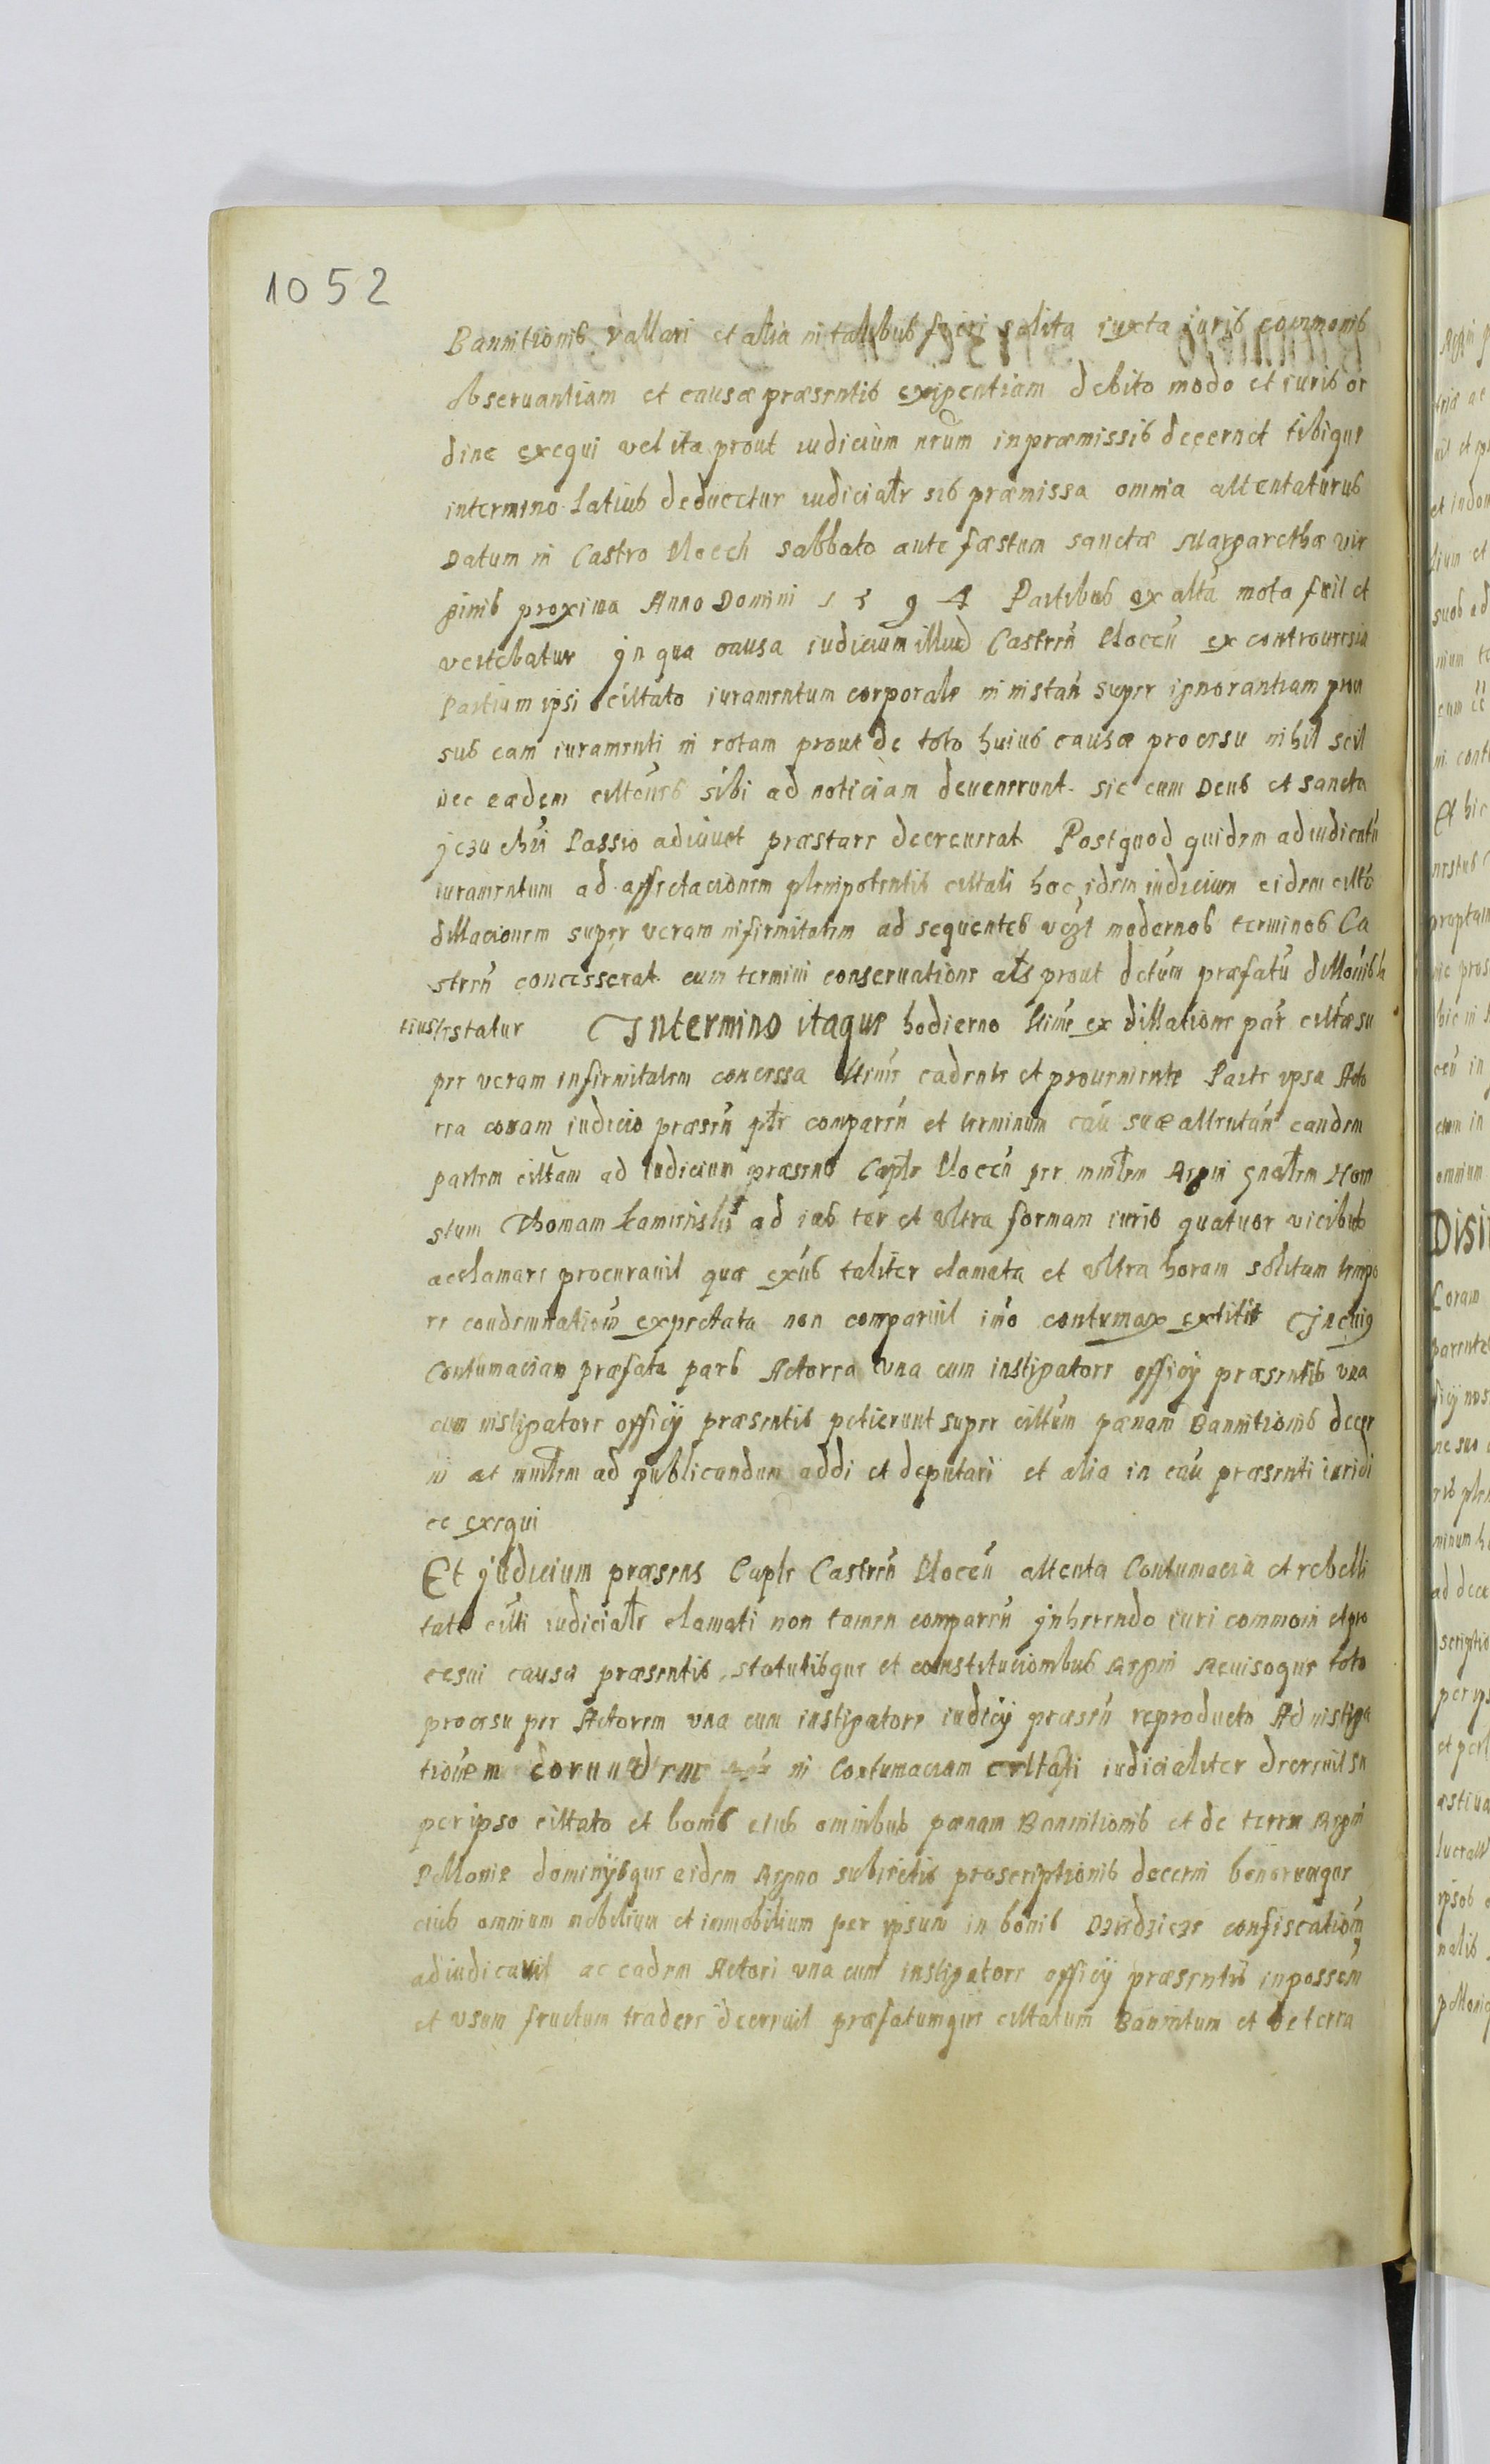 1052
Bannitionis vallari et alia in talibus fieri solita iuxta iuris commonis
observantiam et causæ præsentis exigentiam debito modo et iuris or
dine exequi vel ita prout iudicium nrum in præmissis decernet tibique
in termino latius deducetur iudicialr sis præmissa omnia attentaturus
Datum in Castro Plocen sabbato ante fæstum sanctæ Margarethæ vir
ginis proxima Anno Domini 1594 Partibus ex alta mota fuit et
vertebatur Jn qua causa iudicium illud Castren Plocen ex controuersia
Partium ipsi cittato iuramentum corporale in instan super ignorantiam
sub eam iuramenti in rotam prout de toto huius causæ processu nihil scit
nec eædem sibi ad noticiam deuenerunt sic eum Deus et sancta
Jezu chri Passio adiuuet præstare decreuerat Post quod quidem adiudicatu
iuramentum ad affectacionem plenipotentis cittati hoc idem iudicium eidem citto
dillacionem super veram infirmitatem ad sequentes modernos terminos Ca
stren concesserat cum termini conseruatione als prout præfatu
tius testatur Jn termino itaque hodierno ex dillatione par cittæ su
per veram infirmitatem concessa cadente et proueniente Parte ipsa Acto
rea coram iudicio præsen ptr comparen et terminum cau suæ attentan eandem
partem cittam ad iudicium præsens Captr Plocen per mintrem Regni gnalem Hone
stum Thomam ad ias ter et ultra formam iuris quatuor vicibus
acclamare procurauit quæ taliter clamata et ultra horam solitam tempo
re condemnation expectata non comparuit imo contumax extitit Jn cuius
Contumaciam præfata pars Actorea una cum instigatore officij præsentis una
cum instigatore officij præsentis petierunt super cittum pænam Bannitionis decer
ni ac mintrem ad publicandum addi et deputari et alia in cau præsenti iuridi
ce exequi
Et Judicium præsens Captr Castren Plocen attenta Contumacia et rebelli
tate citti iudicialr clamati non tamen comparen Jnherendo iuri commoni et pro
cesui causæ præsentis statutisque et constitucionibus Regni Reuisoque toto
procesu per Actorem una cum instigatore iudicij præsen reproducto Ad instiga
tionem eorundem in Contumaciam cittati iudicialiter decreuit su
per ipso cittato et bonis eius omnibus pænam Bannitionis et de terra Regni
Pollonie dominijsque eidem Regno subiectis proscriptionis decerni bonorumque
eius omnium mobilium et immobilium per ipsum in bonis confiscation
adiudicauit ac eadem Actori una cum instigatore officij præsentis in possem
et usum fructum tradere decreuit præfatumque cittatum Bannitum et de terra